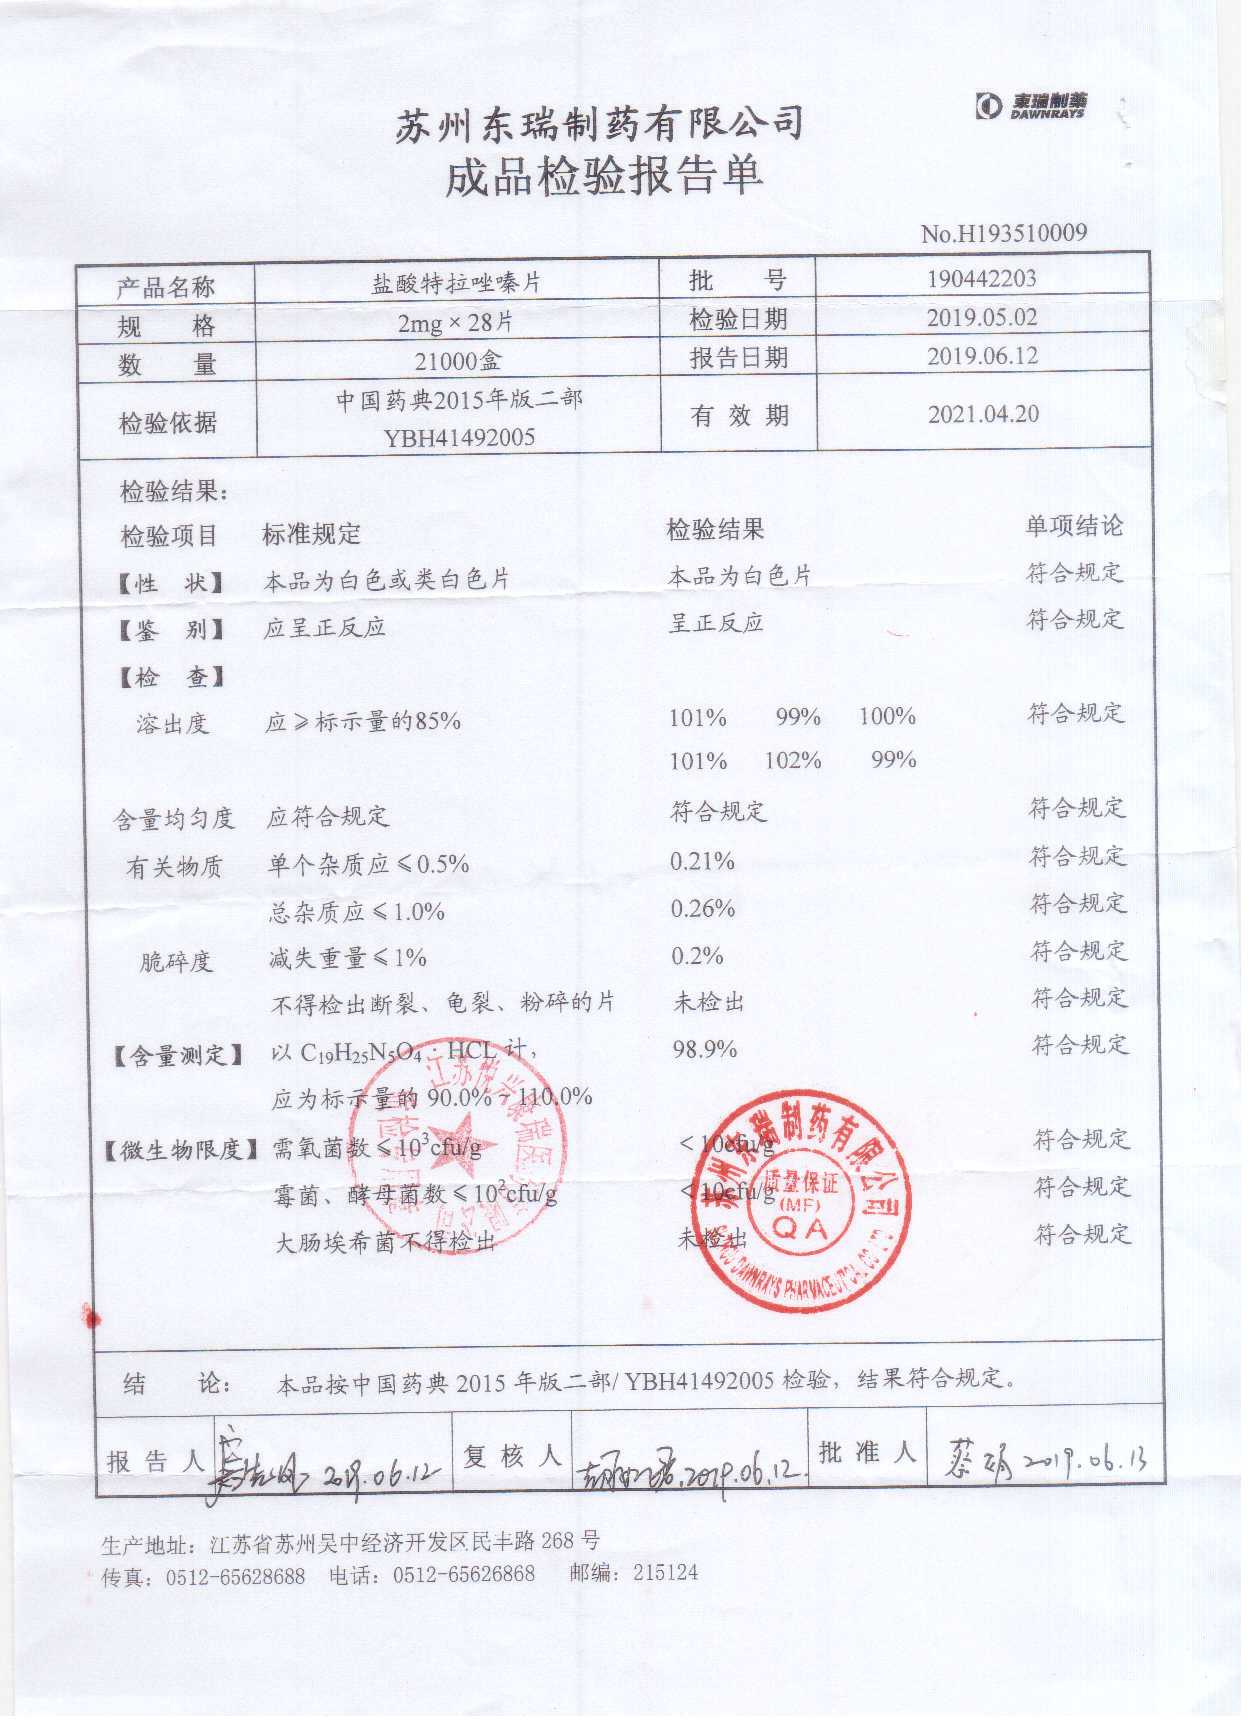 東瑞制藥
DAWNRAYS
苏州东瑞制药有限公司
成品检验报告单
No.H193510009
产品名称 盐酸特拉唑嗪片 批 号 190442203
规 格 2mg×28片 检验日期 2019.05.02
数 量 21000盒 报告日期 2019.06.12
检验依据 中国药典2015年版二部 YBH41492005 有 效 期 2021.04.20
检验结果：
检验项目 标准规定 检验结果 单项结论
【性 状】 本品为白色或类白色片 本品为白色片 符合规定
【鉴 别】 应呈正反应 呈正反应 符合规定
【检 查】
溶出度 应≥标示量的85% 101% 99% 100% 符合规定
101% 102% 99%
含量均匀度 应符合规定 符合规定 符合规定
有关物质 单个杂质应≤0.5% 0.21% 符合规定
总杂质应≤1.0% 0.26% 符合规定
脆碎度 减失重量≤1% 0.2% 符合规定
不得检出断裂、龟裂、粉碎的片 未检出 符合规定
【含量测定】 以 C₁₉H₂₅N₅O₄·HCL 计， 98.9% 符合规定
应为标示量的 90.0%~110.0%
【微生物限度】 需氧菌数≤10³cfu/g <10cfu/g 符合规定
霉菌、酵母菌数≤10²cfu/g <10cfu/g 符合规定
大肠埃希菌不得检出 未检出 符合规定
苏州东瑞制药有限公司
质量保证
(MF)
QA
DAWNRAYS PHARMACEUTICAL CO.,LTD
结 论： 本品按中国药典 2015 年版二部/ YBH41492005 检验，结果符合规定。
报 告 人 2019.06.12 复 核 人 2019.06.12. 批 准 人 蔡娟 2019.06.13
生产地址：江苏省苏州吴中经济开发区民丰路 268 号
传真：0512-65628688 电话：0512-65626868 邮编：215124